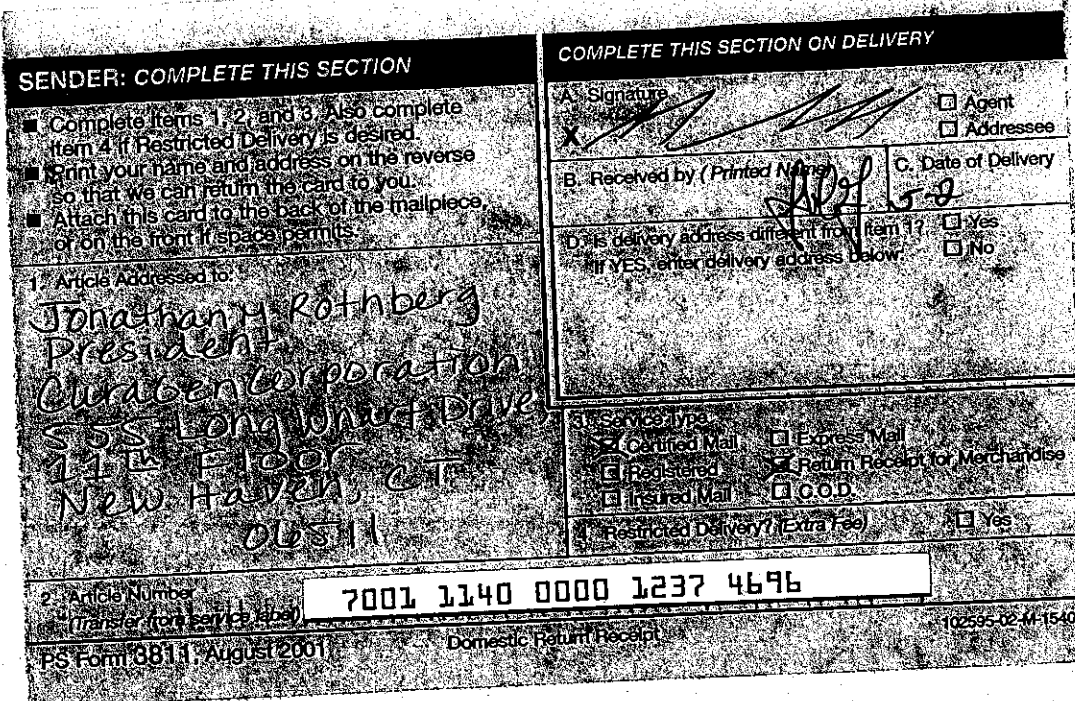 SENDER: COMPLETE THIS SECTION
■ Complete items 1, 2, and 3. Also complete
item 4 if Restricted Delivery is desired.
■ Print your name and address on the reverse
so that we can return the card to you.
■ Attach this card to the back of the mailpiece,
or on the front if space permits.
1. Article Addressed to:
Jonathan M Rothberg
President
CuraGen Corporation
555 Long Wharf Drive,
11th Floor
New Haven, CT
06511
2. Article Number
(Transfer from service label)
7001 1140 0000 1237 4696
PS Form 3811, August 2001
Domestic Return Receipt
102595-02-M-1540
COMPLETE THIS SECTION ON DELIVERY
A. Signature
X
☐ Agent
☐ Addressee
B. Received by (Printed Name)
C. Date of Delivery
5-2
D. Is delivery address different from item 1? ☐ Yes
If YES, enter delivery address below: ☐ No
3. Service Type
☒ Certified Mail ☐ Express Mail
☐ Registered ☒ Return Receipt for Merchandise
☐ Insured Mail ☐ C.O.D.
4. Restricted Delivery? (Extra Fee) ☐ Yes